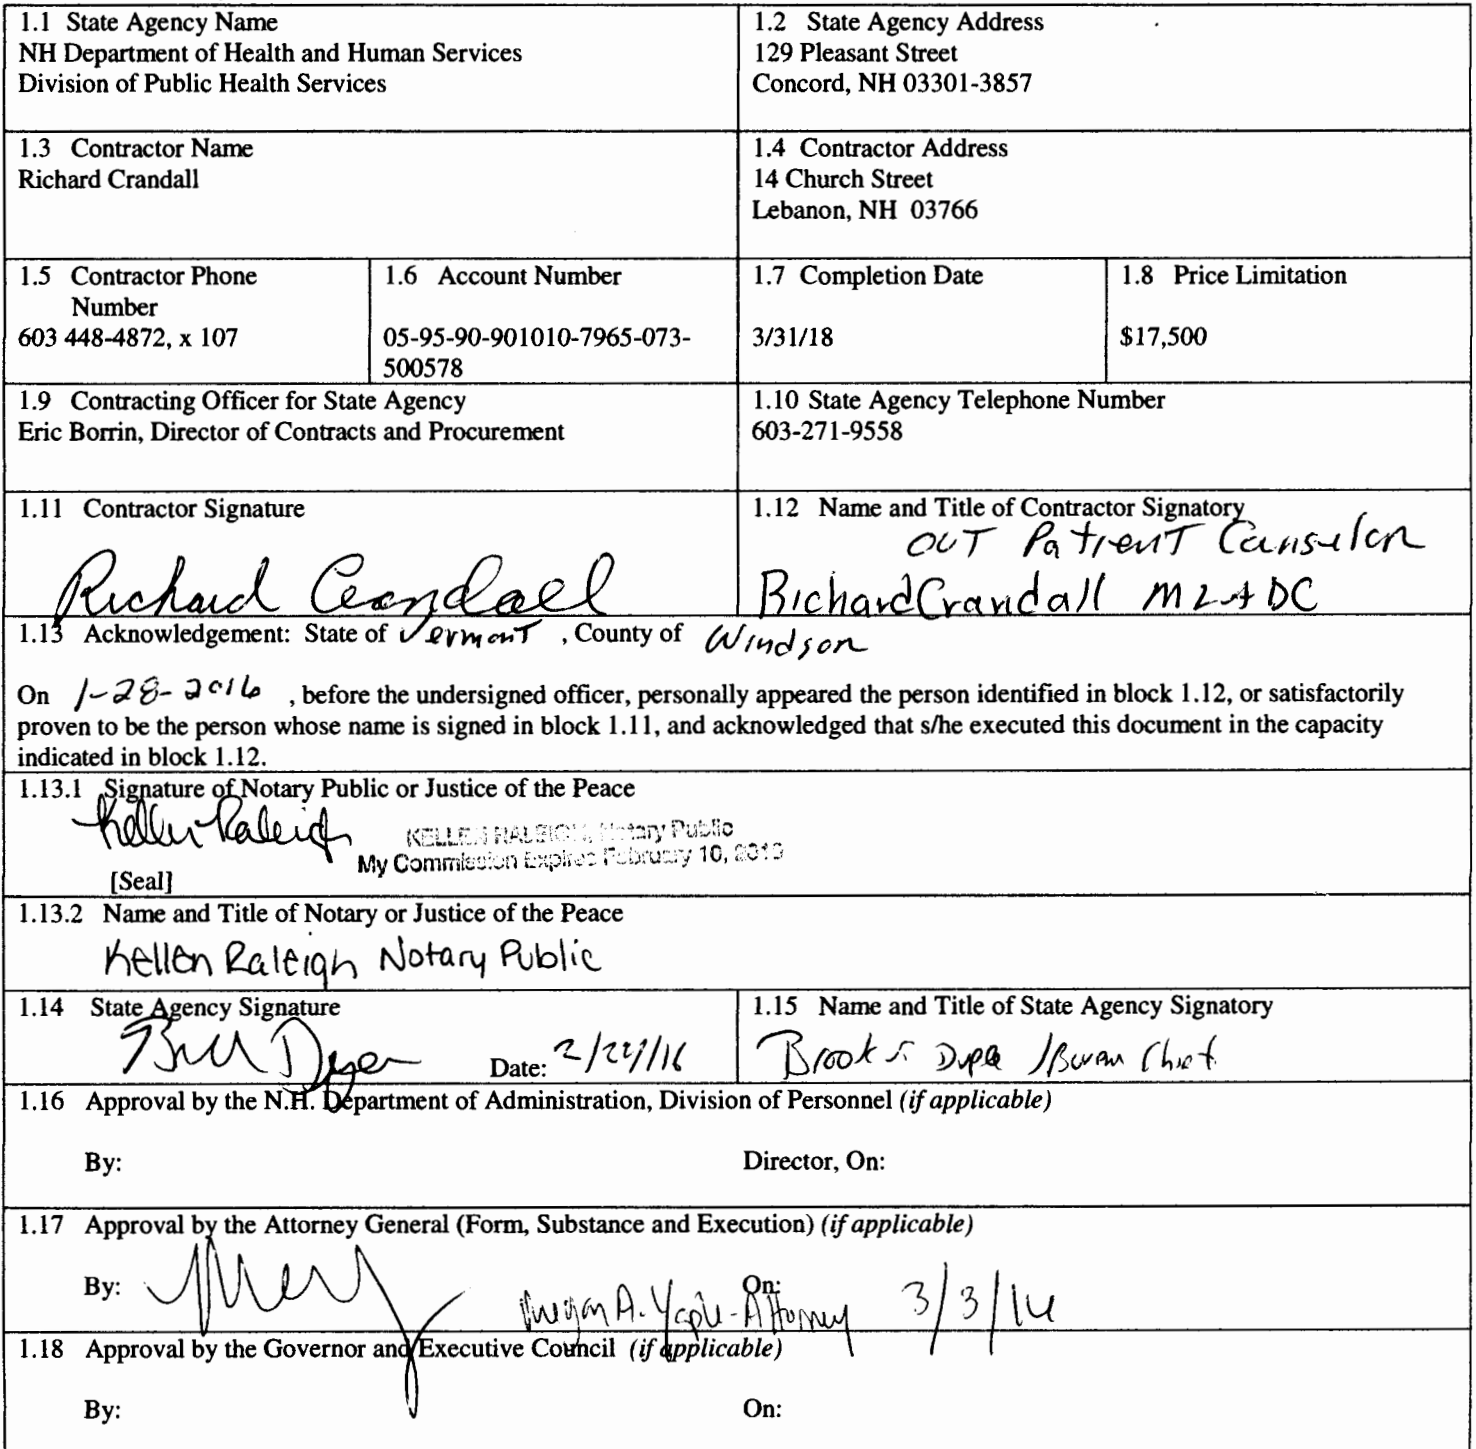 1.1 State Agency Name
NH Department of Health and Human Services
Division of Public Health Services
1.2 State Agency Address
129 Pleasant Street
Concord, NH 03301-3857
1.3 Contractor Name
Richard Crandall
1.4 Contractor Address
14 Church Street
Lebanon, NH 03766
1.5 Contractor Phone
Number
603 448-4872, x 107
1.6 Account Number
05-95-90-901010-7965-073-
500578
1.7 Completion Date
3/31/18
1.8 Price Limitation
$17,500
1.9 Contracting Officer for State Agency
Eric Borrin, Director of Contracts and Procurement
1.10 State Agency Telephone Number
603-271-9558
1.11 Contractor Signature
Richard Crandall
1.12 Name and Title of Contractor Signatory
OUT Patient
Richard Crandall MLADC
1.13 Acknowledgement: State of Vermont , County of Windsor
On 1-28-2016 , before the undersigned officer, personally appeared the person identified in block 1.12, or satisfactorily
proven to be the person whose name is signed in block 1.11, and acknowledged that s/he executed this document in the capacity
indicated in block 1.12.
1.13.1 Signature of Notary Public or Justice of the Peace
Kellen Raleigh
KELLEN RALEIGH, Notary Public
My Commission Expires February 10,
[Seal]
1.13.2 Name and Title of Notary or Justice of the Peace
Kellen Raleigh Notary Public
1.14 State Agency Signature
Date:
1.15 Name and Title of State Agency Signatory
Brook
1.16 Approval by the N.H. Department of Administration, Division of Personnel (if applicable)
By:
Director, On:
1.17 Approval by the Attorney General (Form, Substance and Execution) (if applicable)
By:
Megan A. Yaple - Attorney
On:
3/3/16
1.18 Approval by the Governor and Executive Council (if applicable)
By:
On: